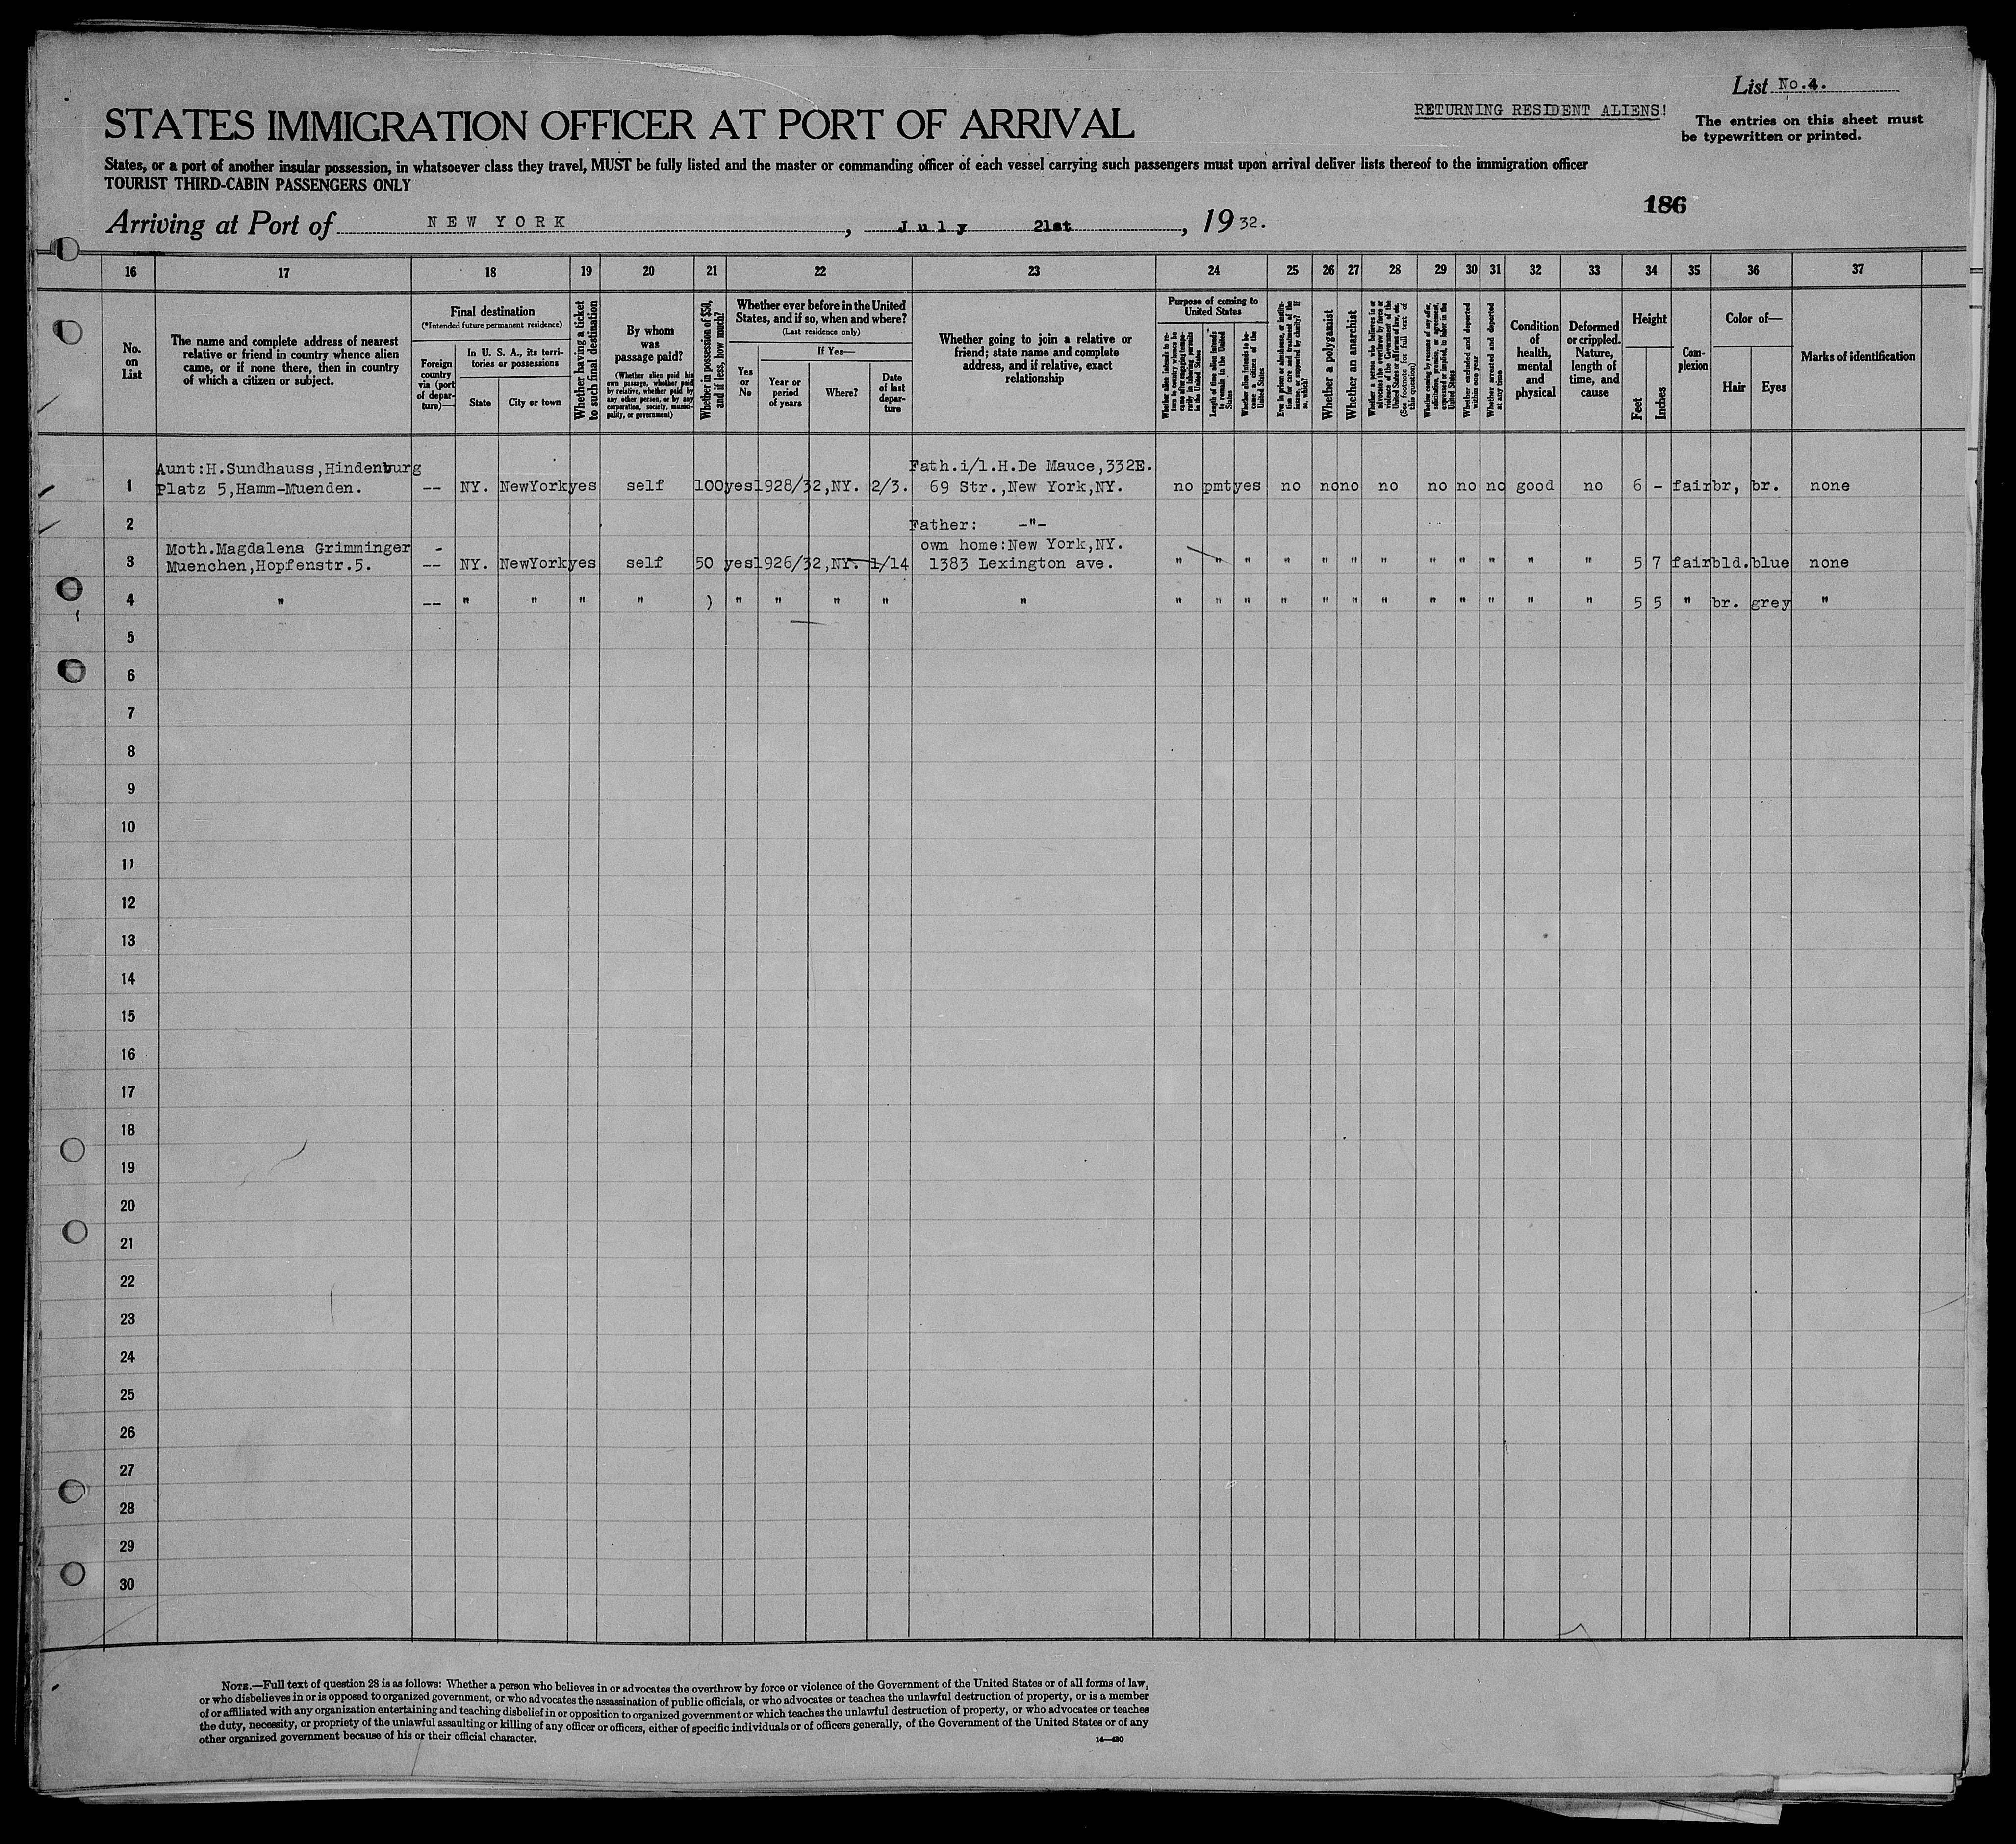 List No.4.
RETURNING RESIDENT ALIENS!
The entries on this sheet must
be typewritten or printed.
STATES IMMIGRATION OFFICER AT PORT OF ARRIVAL
States, or a port of another insular possession, in whatsoever class they travel, MUST be fully listed and the master or commanding officer of each vessel carrying such passengers must upon arrival deliver lists thereof to the immigration officer
TOURIST THIRD-CABIN PASSENGERS ONLY
186
Arriving at Port of NEW YORK, July 21st, 1932.
16 17 18 19 20 21 22 23 24 25 26 27 28 29 30 31 32 33 34 35 36 37
No. on List
The name and complete address of nearest
relative or friend in country whence alien
came, or if none there, then in country
of which a citizen or subject.
Final destination
(*Intended future permanent residence)
Foreign country via (port of departure)—
In U. S. A., its territories or possessions
State
City or town
Whether having a ticket to such final destination
By whom was passage paid?
(Whether alien paid his own passage, whether paid by relative, whether paid by any other person, or by any corporation, society, municipality, or government)
Whether in possession of $50, and if less, how much?
Whether ever before in the United
States, and if so, when and where?
(Last residence only)
Yes or No
If Yes—
Year or period of years
Where?
Date of last departure
Whether going to join a relative or
friend; state name and complete
address, and if relative, exact
relationship
Purpose of coming to United States
Whether alien intends to return to country whence he came after engaging temporarily in laboring pursuits in the United States
Length of time alien intends to remain in the United States
Whether alien intends to become a citizen of the United States
Ever in prison or almshouse, or institution for care and treatment of the insane, or supported by charity? If so, which?
Whether a polygamist
Whether an anarchist
Whether a person who believes in or advocates the overthrow by force or violence of the Government of the United States or all forms of law, etc. (See footnote for full text of this question)
Whether coming by reasons of any offer, solicitation, promise, or agreement, expressed or implied, to labor in the United States
Whether excluded and deported within one year
Whether arrested and deported at any time
Condition of health, mental and physical
Deformed or crippled. Nature, length of time, and cause
Height
Feet
Inches
Complexion
Color of—
Hair
Eyes
Marks of identification
Aunt:H.Sundhauss,Hindenburg Fath.i/l.H.De Mauce,332E.
1 Platz 5,Hamm-Muenden. -- NY. NewYork yes self 100 yes 1928/32,NY. 2/3. 69 Str.,New York,NY. no pmt yes no no no no no no no good no 6 - fair br, br. none
2 Father: -"-
Moth.Magdalena Grimminger - own home:New York,NY.
3 Muenchen,Hopfenstr.5. -- NY. NewYork yes self 50 yes 1926/32,NY. 1/14 1383 Lexington ave. " " " " " " " " " " " " 5 7 fair bld. blue none
4 " -- " " " " ) " " " " " " " " " " " " " " " " " 5 5 " br. grey "
5
6
7
8
9
10
11
12
13
14
15
16
17
18
19
20
21
22
23
24
25
26
27
28
29
30
NOTE.—Full text of question 28 is as follows: Whether a person who believes in or advocates the overthrow by force or violence of the Government of the United States or of all forms of law,
or who disbelieves in or is opposed to organized government, or who advocates the assassination of public officials, or who advocates or teaches the unlawful destruction of property, or is a member
of or affiliated with any organization entertaining and teaching disbelief in or opposition to organized government or which teaches the unlawful destruction of property, or who advocates or teaches
the duty, necessity, or propriety of the unlawful assaulting or killing of any officer or officers, either of specific individuals or of officers generally, of the Government of the United States or of any
other organized government because of his or their official character.
14—430